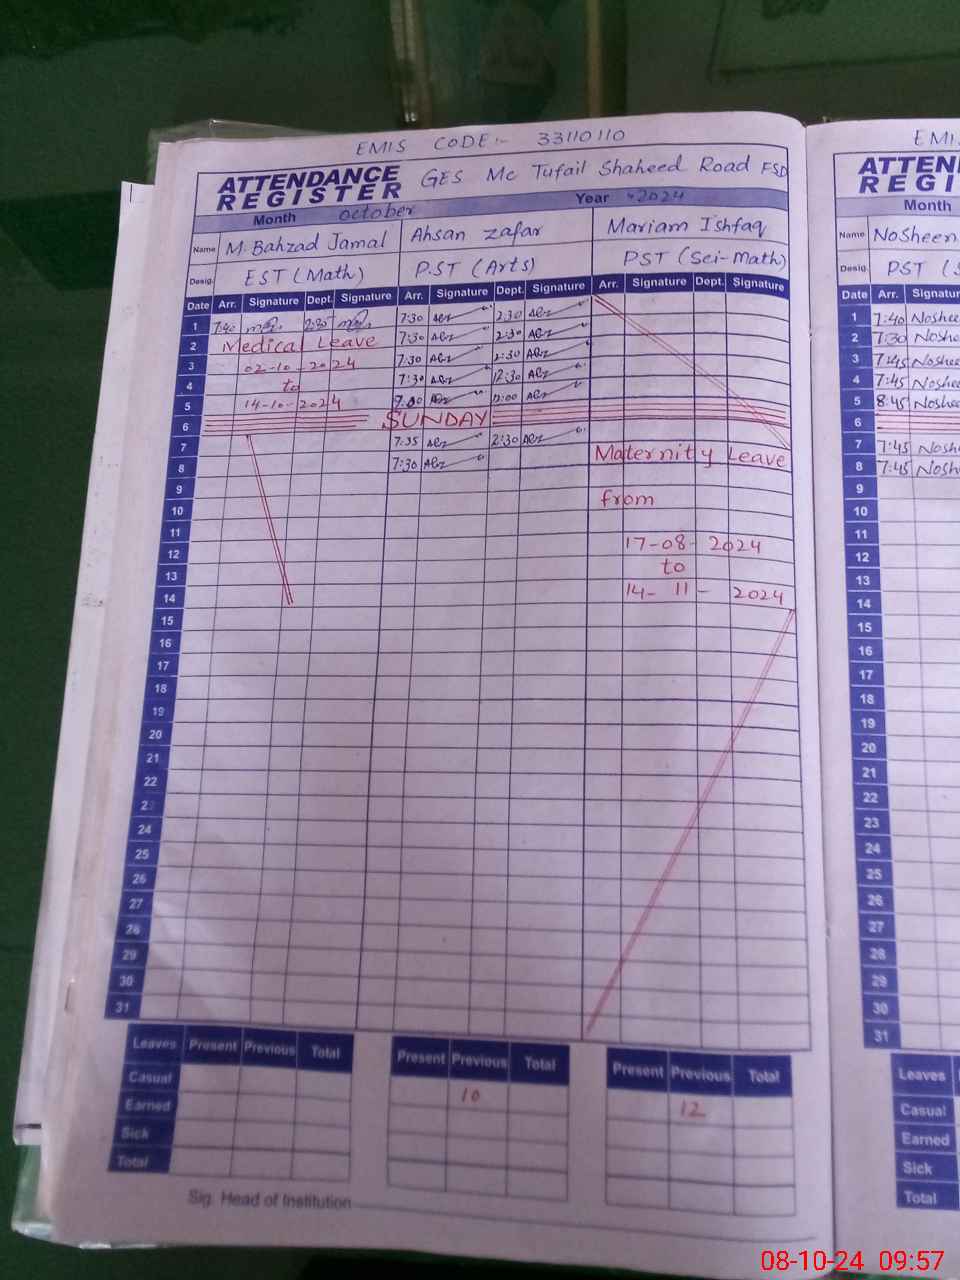 EMIS CODE:- 33110110
ATTENDANCE REGISTER GES Mc Tufail Shaheed Road FSD
Month October Year 2024
Name M. Bahzad Jamal Ahsan Zafar Mariam Ishfaq
Desig. EST (Math) PST (Arts) PST (Sci-Math)
Date Arr. Signature Dept. Signature Arr. Signature Dept. Signature Arr. Signature Dept. Signature
1 7:40 2:30 7:30 2:30
2 Medical Leave 7:30 2:30
3 02-10-2024 7:30 2:30
4 to 7:30 12:30
5 14-10-2024 12:00
6 SUNDAY
7 7:35 2:30
8 7:30 Maternity Leave
9
10 from
11
12 17-08-2024
13 to
14 14-11-2024
15
16
17
18
19
20
21
22
23
24
25
26
27
28
29
30
31
Leaves Present Previous Total Present Previous Total Present Previous Total
Casual 10 12
Earned
Sick
Total
Sig. Head of Institution
EMI
ATTEN
REGI
Month
Name Nosheen
Desig. PST (S
Date Arr. Signatur
1 7:40 Noshee
2 7:30 Noshe
3 7:45 Noshe
4 7:45 Noshee
5 8:45 Noshee
6
7 7:45 Nosh
8 7:45 Nosh
9
10
11
12
13
14
15
16
17
18
19
20
21
22
23
24
25
26
27
28
29
30
31
Leaves
Casual
Earned
Sick
Total
08-10-24 09:57